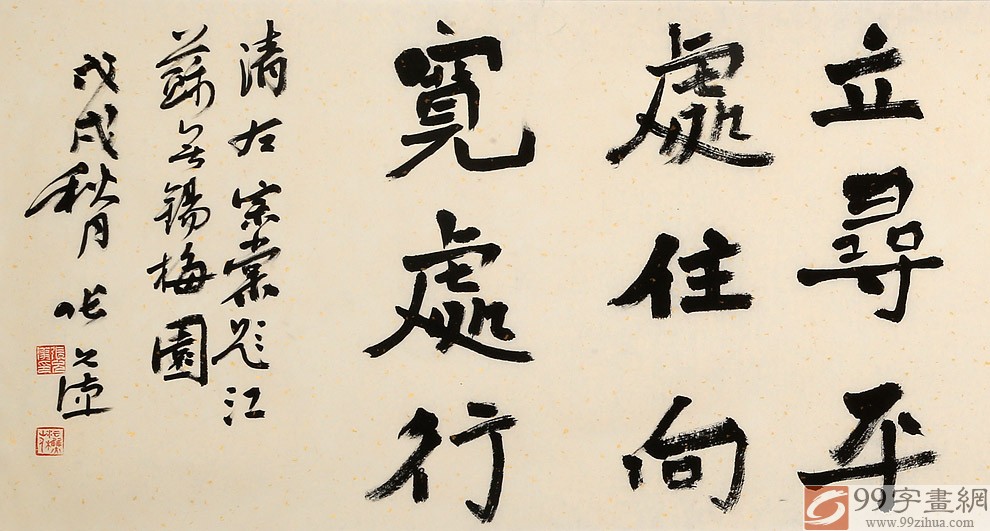 立尋平
處住向
寬處行
清左宗棠題江
蘇無錫梅園
戊戌秋月 張公德
99字畫網
www.99zihua.com